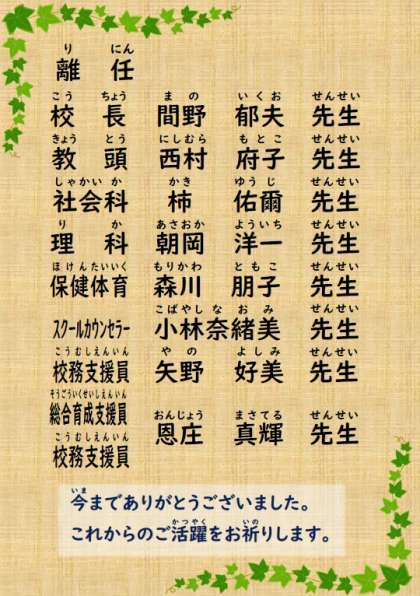 りにん
離任
こうちょう まの いくお せんせい
校長 間野 郁夫 先生
きょうとう にしむら もとこ せんせい
教頭 西村 府子 先生
しゃかいか かき ゆうじ せんせい
社会科 柿 佑爾 先生
りか あさおか よういち せんせい
理科 朝岡 洋一 先生
ほけんたいいく もりかわ ともこ せんせい
保健体育 森川 朋子 先生
こばやし なおみ せんせい
スクールカウンセラー 小林 奈緒美 先生
こうむしえんいん やの よしみ せんせい
校務支援員 矢野 好美 先生
そうごういくせいしえんいん
総合育成支援員
おんじょう まさてる せんせい
恩庄 真輝 先生
こうむしえんいん
校務支援員
いま
今までありがとうございました。
かつやく いの
これからのご活躍をお祈りします。